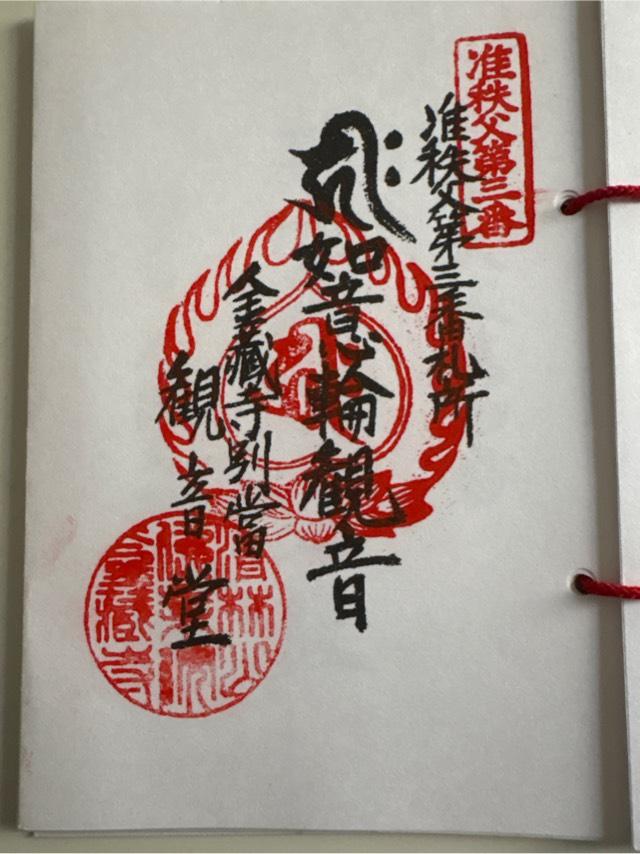 准秩父第三番
准秩父第三番札所
如意輪観音
金藏寺別當
観音堂